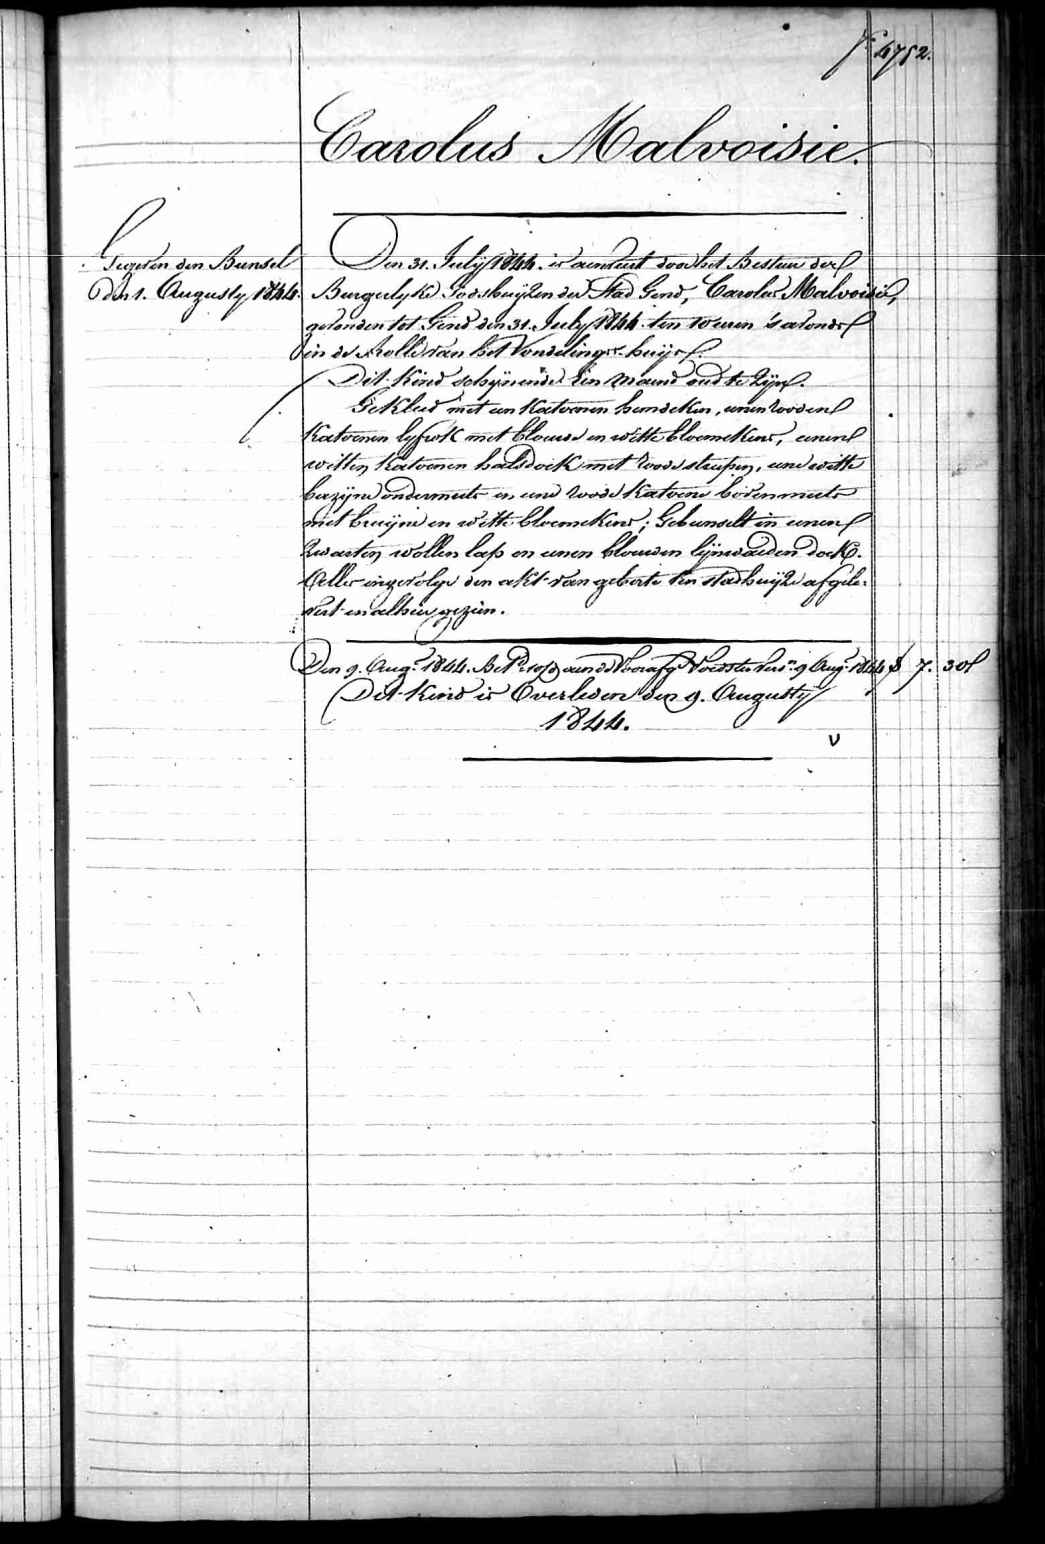 f° 4752.
Carolus Malvoisie.
Gegeven den Bunsel
den 1. Augusty 1844.
Den 31. July 1844. is aenveert door het Bestuer der
Burgerlyke Godshuyzen der Stad Gend, Carolus Malvoisie,
gevonden tot Gend den 31. July 1844. ten 10 uren 's avonds
in de Rolle van het Vondelings-huys.
Dit Kind schynende Een Maend oud te Zyn.
Gekleed met een Katoenen hemdeken, eenen rooden
Katoenen lyfrok met blauwe en witte bloemekens, eenen
witten Katoenen halsdoek met roode streepen, eene witte
bazyne ondermuts en eene roode Katoene bovenmuts
met bruyne en witte bloemekens; Gebunselt in eenen
Zwarten wollen lap en eenen blauwen lynwaeden doek.
Alles ingevolge den akt van geboorte ten stadhuyze afgele-
vert en alhier gezien.
Den 9. Aug. 1844. Bet. aen de Voorafg. Voedster 9 Aug. 1844 7. 30
Dit Kind is Overleden den 9. Augusty
1844.
v